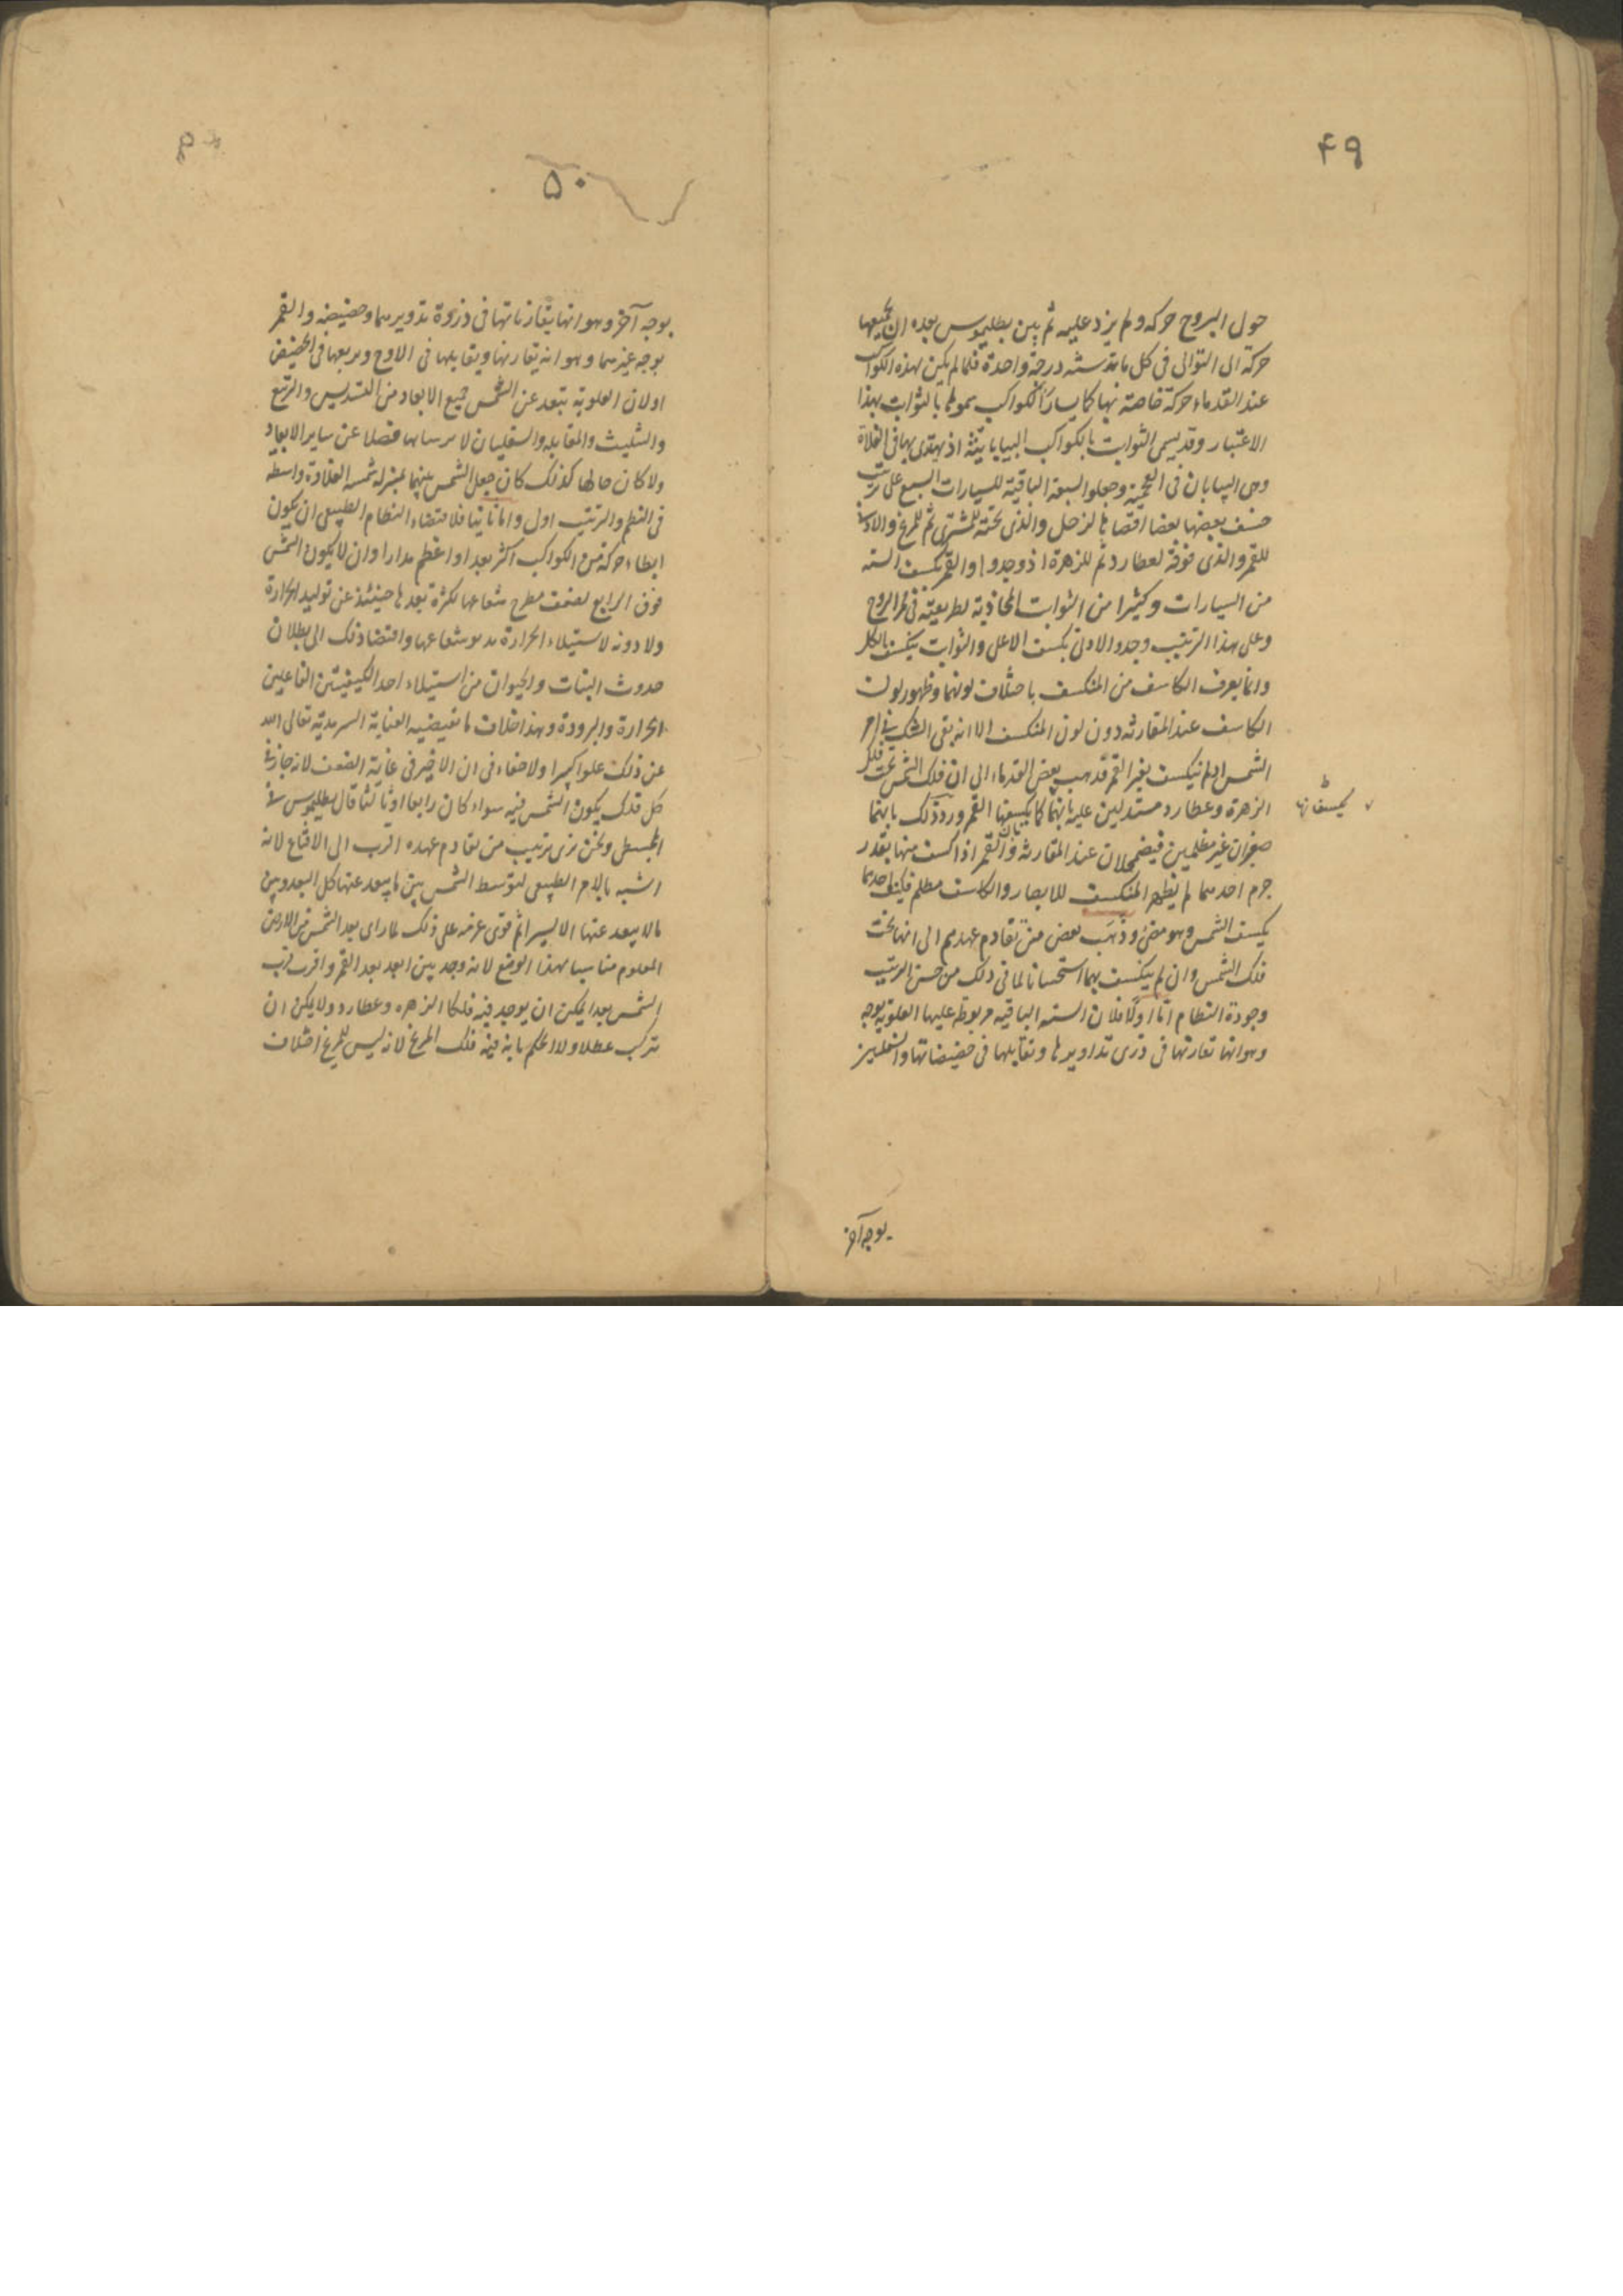 ۴۹
حول البروج حركه ولم يزد عليه ثم بين بطليموس بعده ان لجميعها
حركة الى التوالى فى كل مائة سنه درجة واحدة فلما لم يكن لهذه الكواكب
عند القدماء حركة خاصة بها كما لسائر الكواكب سموها بالثوابت بهذا
الاعتبار وقد يسمى الثوابت بالكواكب البيابانيه اذ يهتدى بها فى الفلاة
وهى البيابان فى العجمية وجعلوا السبعة الباقية للسيارات السبع على ترتيب
خسف بعضها بعضا اقصاها لزحل والذى تحته للمشترى ثم للمريخ والادنى
للقمر والذى فوقه لعطارد ثم للزهرة اذ وجدوا والقمر يكسف السته
من السيارات وكثيرا من الثوابت المحاذية لطريقته فى ممر البروج
وعلى هذا الترتيب وجدوا الادنى يكسف الاعلى والثوابت ينكسف بالكل
وانما يعرف الكاسف من المنكسف باختلاف لونهما وظهور لون
الكاسف عند المقارنه دون لون المنكسف الا انه بقى الشك فى امر
الشمس اذ لم ينكسف بغير القمر فذهب بعض القدماء الى ان فلك الشمس تحت فلك
الزهرة وعطارد مستدلين عليه بانهما كما يكسفها القمر ورد ذلك بانهما
يكسفانها
صغيران غير مظلمين فيضمحلان عند المقارنه وبان القمر اذا كسف منها بقدر
جرم احدهما لم يظهر المنكسف للابصار والكاسف مظلم فكيف احدهما
يكسف الشمس وهو مضئ وذهب بعض من تقادم عهدهم الى انها تحت
فلك الشمس وان لم ينكسف بهما استحسانا لما فى ذلك من حسن الترتيب
وجودة النظام امّا اولا فلان السته الباقيه مربوطه عليها العلويه بوجه
وهو انها تقارنها فى ذرى تداويرها وتقابلها فى حضيضاتها والسفليين
بوجه آخر
۵۰
بوجه آخر وهو انهما يقارنانها فى ذروة تدويرهما وحضيضه والقمر
بوجه غيرهما وهو انه يقارنها ويقابلها فى الاوج ويربعها فى الحضيض
او لان العلوية تبعد عن الشمس جميع الابعاد من التسديس والتربيع
والتثليث والمقابله والسفليان لا يسدسانها فضلا عن ساير الابعاد
ولما كان حالها كذلك كان جعل الشمس بينهما بمنزلة شمسة القلادة واسطه
فى النظم والترتيب اولى واما ثانيا فلاقتضاء النظام الطبيعى ان يكون
ابطاء حركة من الكواكب اكثر بعدا واعظم مدارا وان لا يكون الشمس
فوق الرابع لضعف مطرح شعاعها لكثرة بعدها حينئذ عن توليد الحرارة
ولا دونه لاستيلاء الحرارة شعاعها واقتضاء ذلك الى بطلان
حدوث النبات والحيوان من استيلاء احد الكيفيتين الفاعلين
الحرارة والبرودة وهذا خلاف ما تقتضيه العناية السرمدية تعالى الله
عن ذلك علوا كبيرا ولا خفاء فى ان الاخير فى غاية الضعف لانه جار فى
كل فلك يكون الشمس فيه سواء كان رابعا او ثالثا قال بطليموس فى
المجسطى ونحن نرى ترتيب من تقادم عهده اقرب الى الاقناع لانه
اشبه بالامر الطبيعى لتوسط الشمس بين ما يبعد عنها كل البعد وبين
ما لا يبعد عنها الا يسيرا ثم قوى عزمه على ذلك لما راى بعد الشمس من الارض
المعلوم مناسبا لهذا الوضع لانه وجد بين ابعد بعد القمر واقرب قرب
الشمس بعدا يمكن ان يوجد فيه فلكا الزهره وعطارد ولا يمكن ان
يترك عطلا ولا الحكم بانه فيه فلك المريخ لانه ليس للمريخ اختلاف